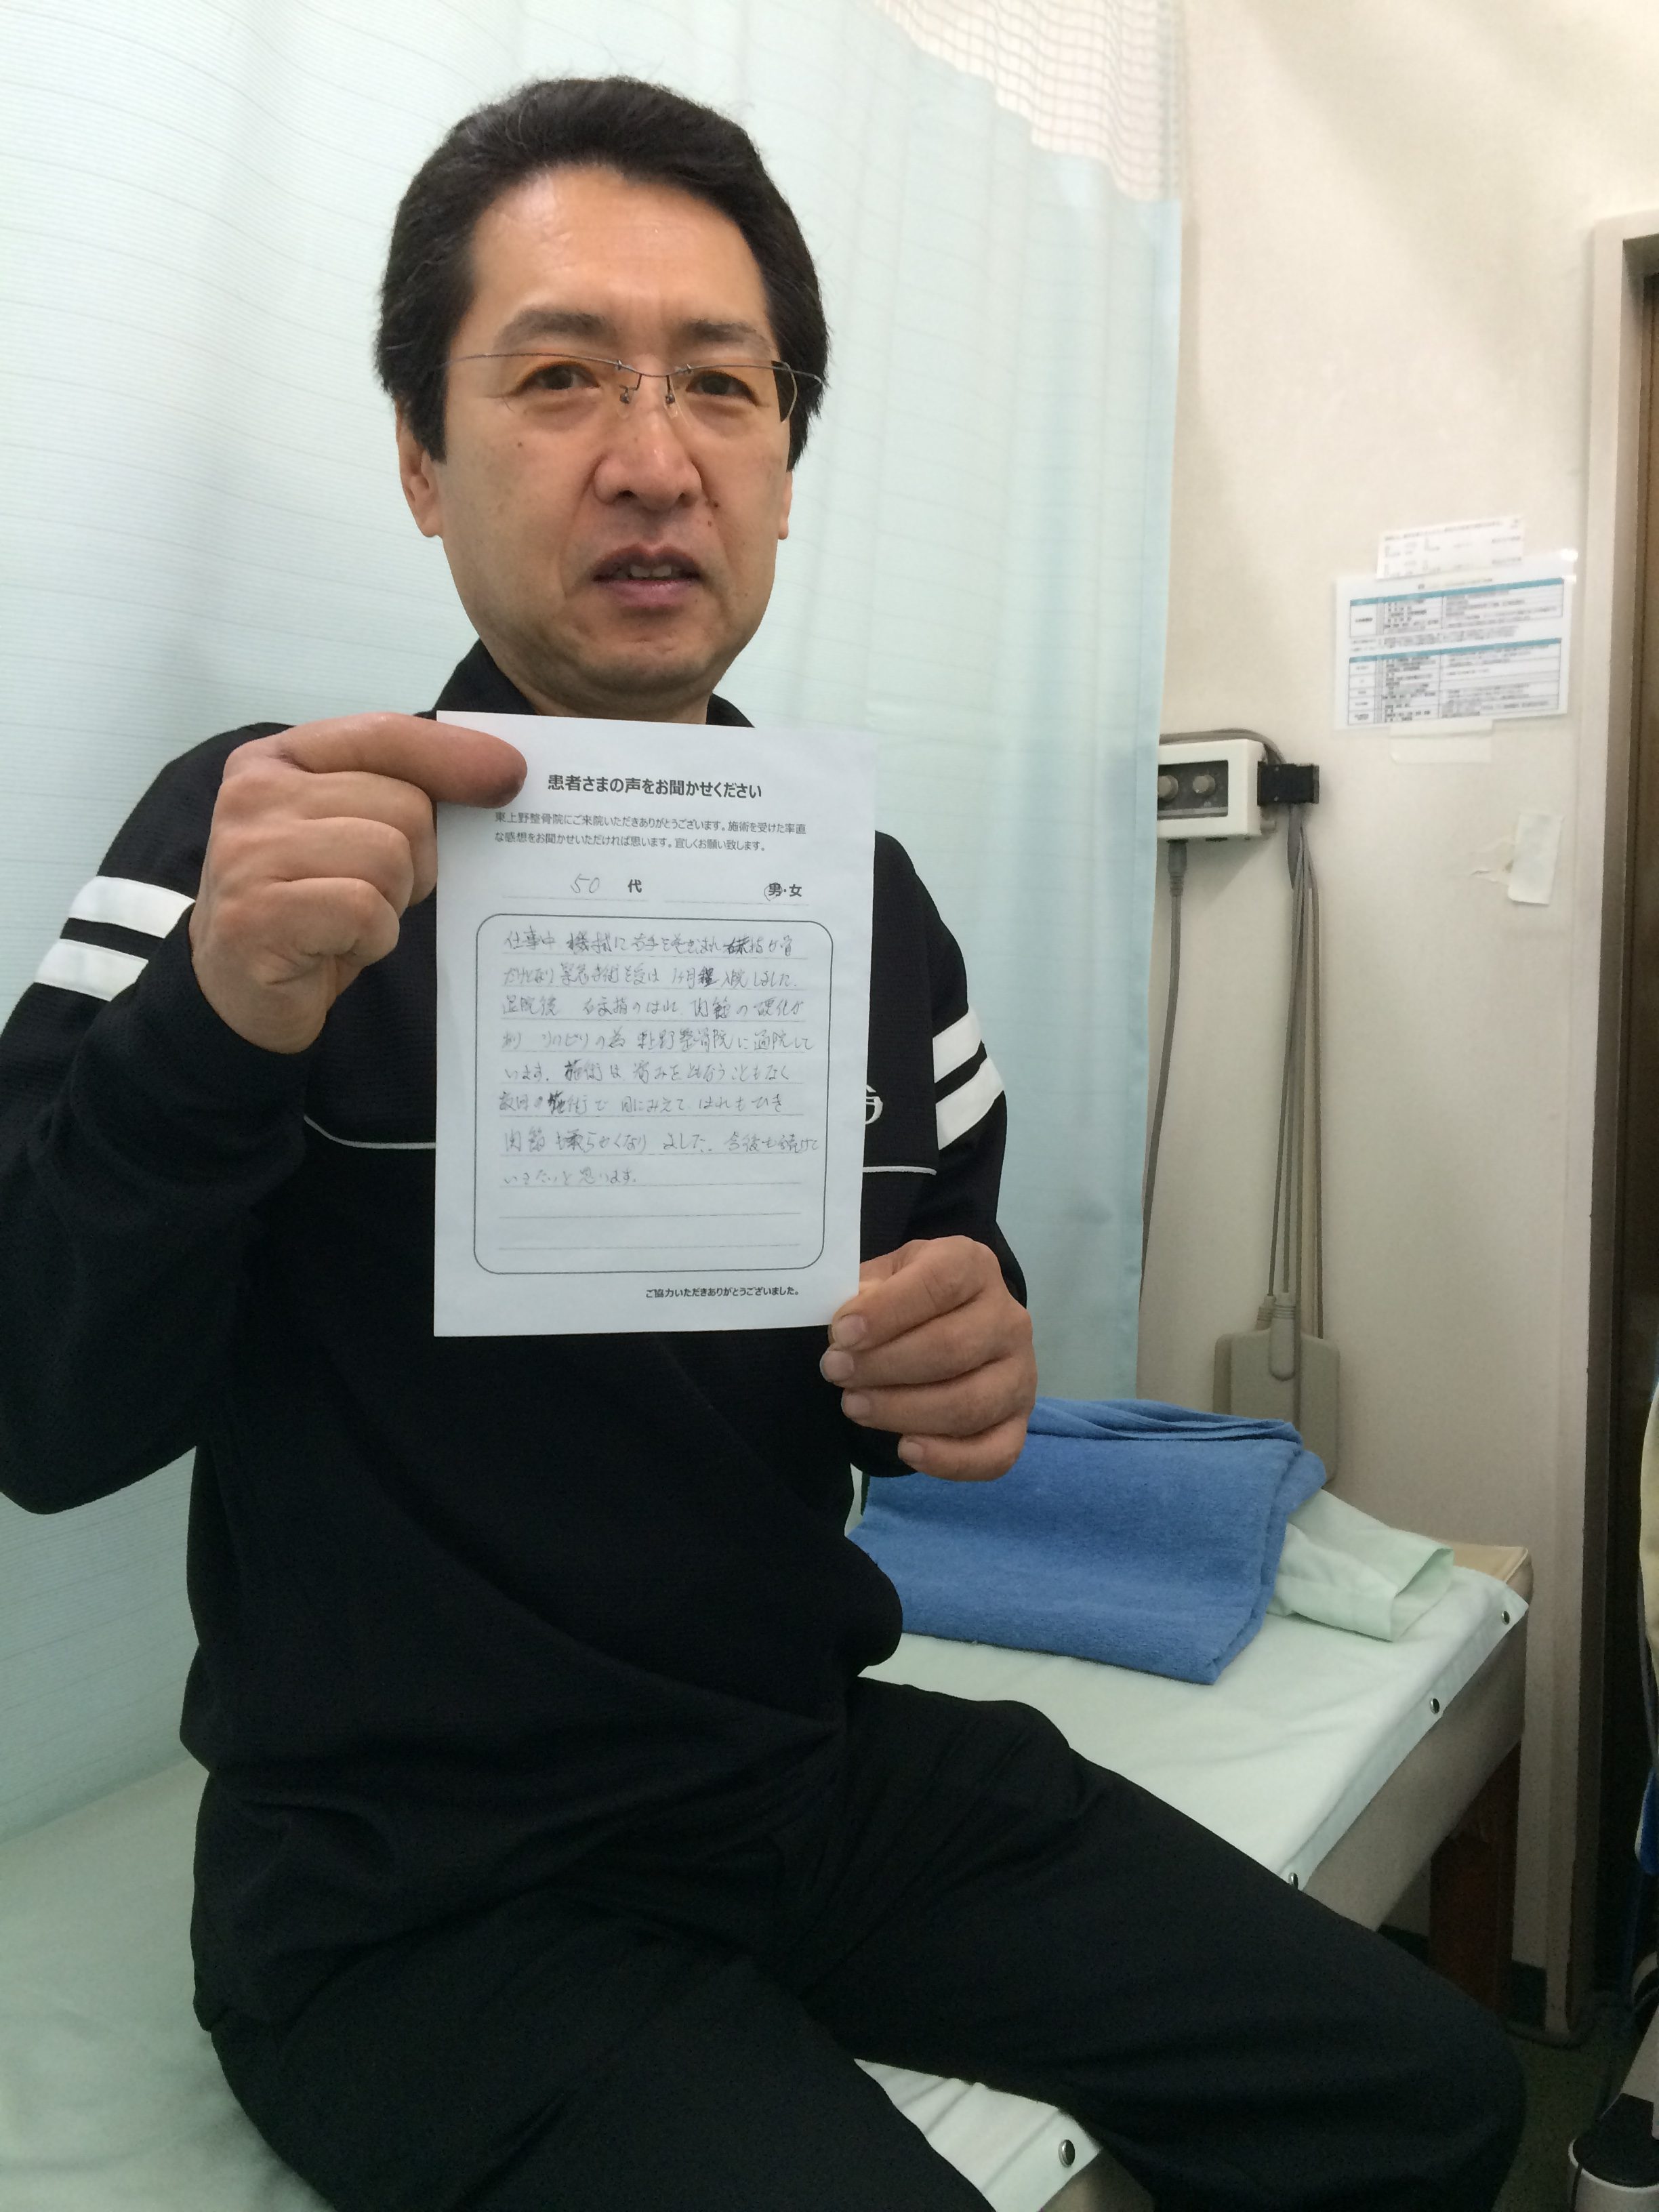 患者さまの声をお聞かせください
東上野整骨院にご来院いただきありがとうございます。施術を受けた率直
な感想をお聞かせいただければ思います。宜しくお願い致します。
50 代 男・女
仕事中 機械に右手を巻き込まれ 示指が骨
だけとなり緊急手術を受け 1ヶ月程入院しました。
退院後 右示指のはれ 関節の硬化が
あり リハビリの為 東上野整骨院に通院して
います。施術は 痛みをともなうこともなく
数回の施術で 目にみえて はれもひき
関節も柔らかくなりました。今後も続けて
いきたいと思います。
ご協力いただきありがとうございました。